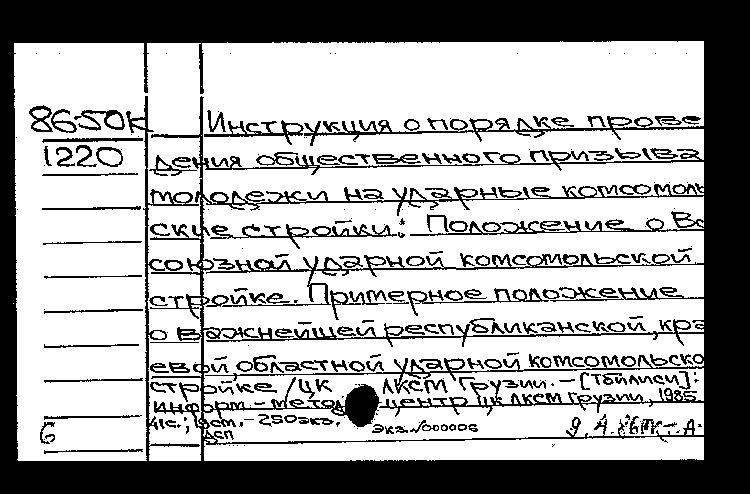 86-50К
Инструкция о порядке прове
1220
дения общественного призыва
молодежи на ударные комсомоль
ские стройки: Положение о Вс
союзной ударной комсомольской
стройке. Примерное положение
о важнейшей республиканской, кра
евой, областной ударной комсомольско
стройке /ЦК ЛКСМ Грузии. – [Тбилиси]:
информ.-метод центр ЦК ЛКСМ Грузии, 1985
41с.; см. – 250экз.
ДСП
экз.№00006
6